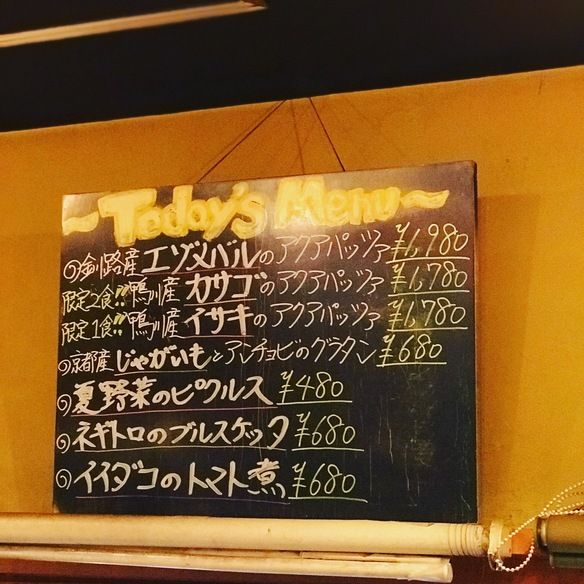 ~Today's Menu~
◎釧路産エゾメバルのアクアパッツァ ¥1,980
限定2食!! 鴨川産 カサゴのアクアパッツァ ¥1,780
限定1食!! 鴨川産 イサキのアクアパッツァ ¥1,780
◎京都産じゃがいもとアンチョビのグラタン ¥680
◎夏野菜のピクルス ¥480
◎ネギトロのブルスケッタ ¥680
◎イイダコのトマト煮 ¥680